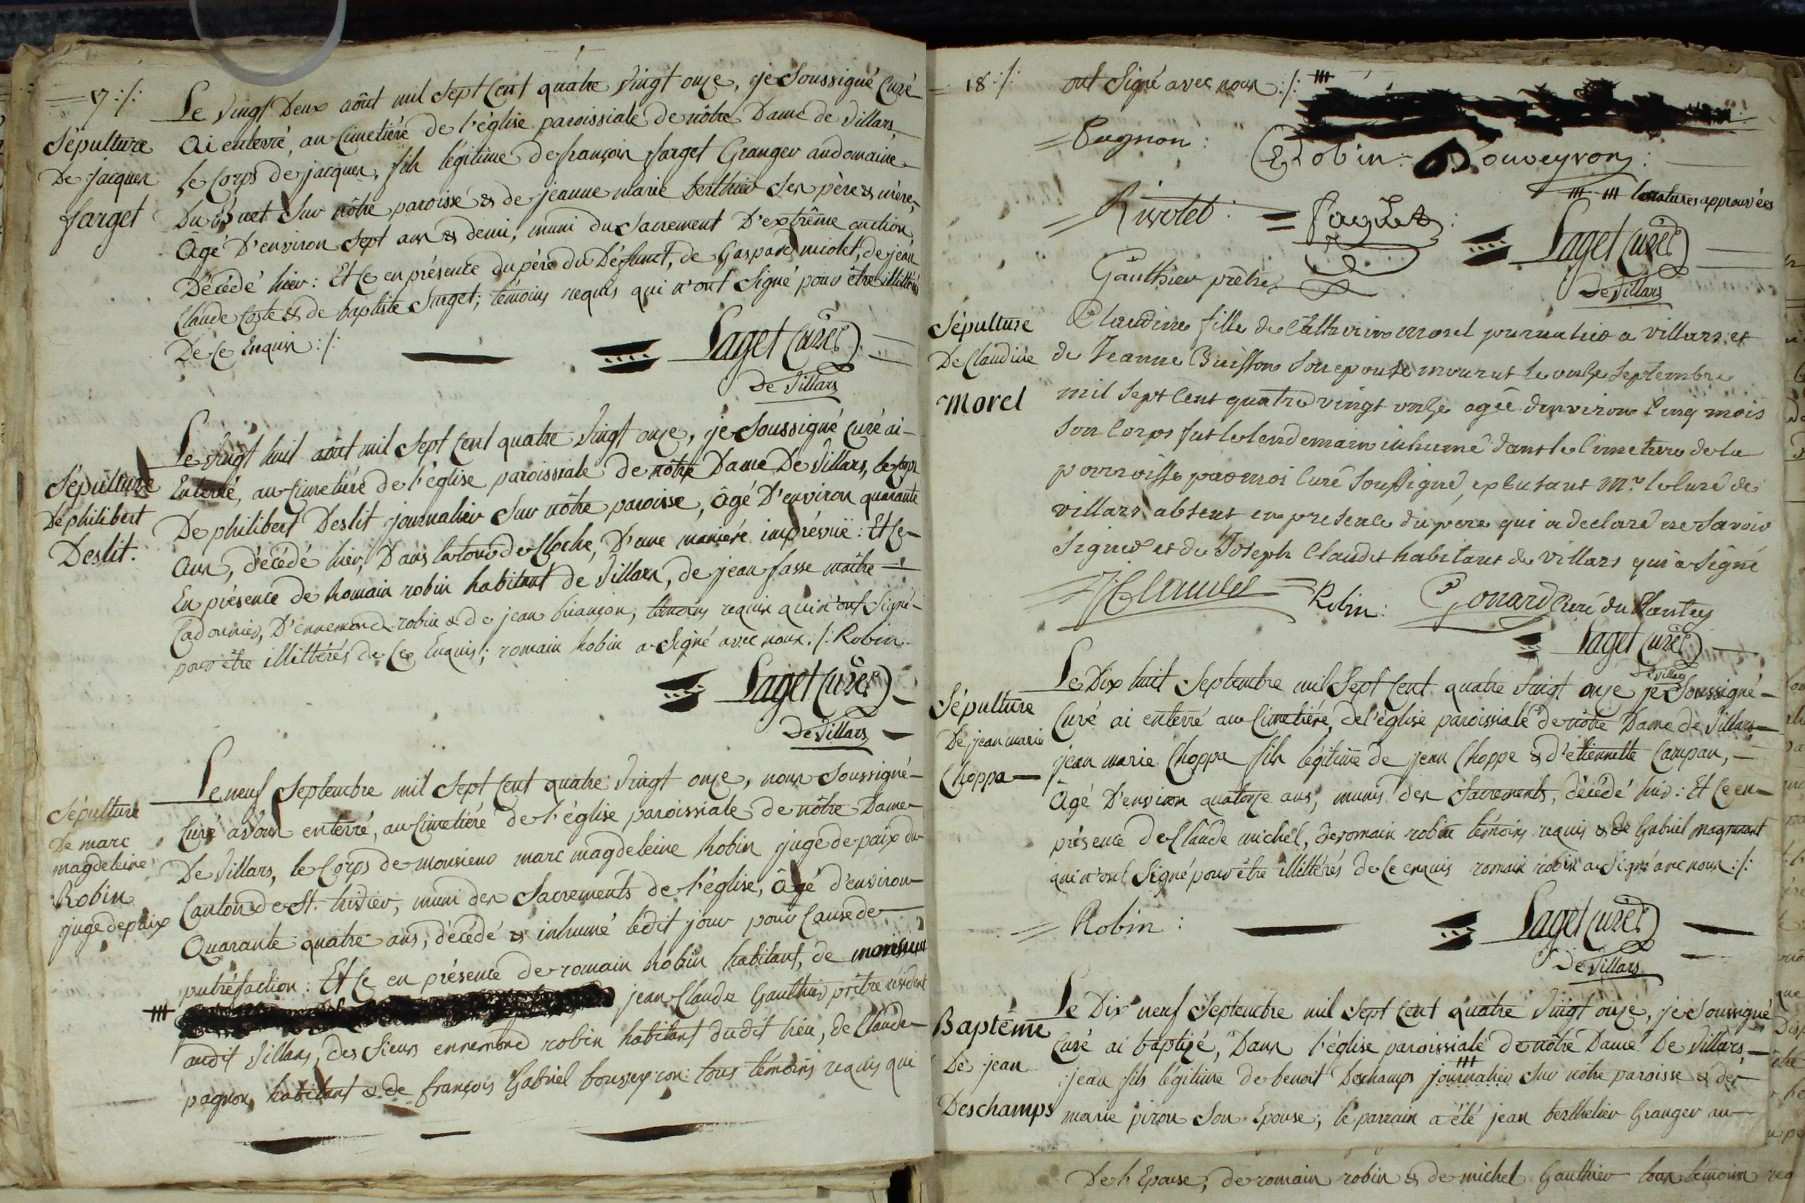 = 7 :/:
Sépulture
De jacques
sarget
Le vingt Deux août mil sept Cent quatre vingt onze, je Soussigné Curé
Ai enterré, au Cimetière de l'église paroissiale de nôtre Dame de Villars
le Corps de jacques, fils légitime de françois sarget Granger au domaine
Du sur nôtre paroisse & de jeanne marie berthier Ses père & mère,
Agé D'environ Sept ans & demi, muni du Sacrement D'extrême onction
Décédé hier : Et Ce en présence du père du Défunct, de Gaspard miolet, de jean
Claude Coste & de baptiste Sarget ; témoins requis qui n'ont Signé pour être illittérés
De Ce Enquis :/:
Laget Curé
De Villars
Sépulture
De philibert
Deslit.
Le vingt huit août mil Sept Cent quatre vingt onze, je Soussigné Curé ai
Enterré, au Cimetière de l'église paroissiale de nôtre Dame De Villars, le Corps
De philibert Deslit journalier Sur nôtre paroisse, âgé D'environ quarante
Ans, décédé hier, Dans la tour du Cloché, D'une manière imprévuë : Et Ce
En présence de Romain robin habitant de Villars, de jean fasse maître
Cadonnier, D'ennemond robin & de jean briançon, témoins requis qui n'ont Signé
pour être illittérés de Ce Enquis ; romain robin a Signé avec nous. /: Robin
Laget Curé
De Villars
Sépulture
De marc
magdeleine
Robin
juge de paix
Le neuf Septembre mil Sept Cent quatre vingt onze, nous Soussigné
Curé avons enterré, au Cimetière de l'église paroissiale de nôtre Dame
De Villars, le Corps de monsieur marc magdeleine Robin juge de paix du
Canton de St. trivier, muni des Sacrements de l'église, Agé d'environ
Quarante quatre ans, décédé & inhumé ledit jour pour Cause de
putréfaction : Et Ce en présence de romain robin habitant, de monsieur
jean Claude Gauthier prêtre résident
audit Villars, des Sieurs ennemond robin habitant dudit lieu, de Claude
pagnon habitant & de françois Gabriel bouveyron tous témoins requis qui
= 18 :/:
ont Signé avec nous :/:
= Pagnon :
E Robin : Bouveyron :
ratures approuvées
= Rivolet : =
Laget Curé
De Villars
Gauthier prêtre
Sépulture
De Claudine
Morel
Claudine fille de Cathrin morel journalier a Villars et
de Jeanne Buisson Son epouse mourut le onze Septembre
mil Sept Cent quatre vingt onze agée denviron Cinq mois
Son Corps fut le lendemain inhumé dans le Cimetiere de la
parroisse par moi Curé Soussigné, Mr. le Curé de
villars absent en presence du pere qui a declaré ne Savoir
Signer et de Joseph Claudet habitant de Villars qui a Signé
J Claudet = Robin : Gonard Curé du Plantay
Laget Curé
De Villars
Sépulture
De jean marie
Choppa
Le Dix huit Septembre mil Sept Cent quatre vingt onze je Soussigné
Curé ai enterré au Cimetière, de l'église paroissiale de nôtre Dame de Villars
jean marie Choppa fils légitime de jean Choppe & d'étiennette Campan,
Agé D'environ quatorze ans, munis des Sacrements, décédé hier : Et Ce en
présence de Claude michel, de romain robin témoins requis & de Gabriel
qui n'ont Signé pour être illittérés de Ce enquis romain robin a Signé avec nous :/:
= Robin :
Laget Curé
De Villars
Baptême
De jean
Deschamps
Le Dix neuf Septembre mil Sept Cent quatre vingt onze, je Soussigné
Curé ai baptizé, Dans l'église paroissiale de nôtre Dame De Villars,
jean fils légitime de benoit Deschamps journalier Sur notre paroisse & de
marie piron Son Epouse ; le parrain a été jean berthelier Granger au
De l'Epouse, de romain robin & de michel Gauthier tous témoins req